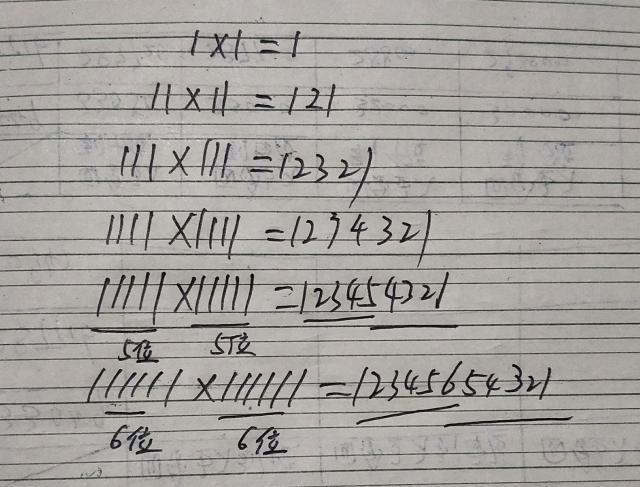 1×1=1
11×11=121
111×111=12321
1111×1111=1234321
11111×11111=123454321
5位 5位
111111×111111=12345654321
6位 6位